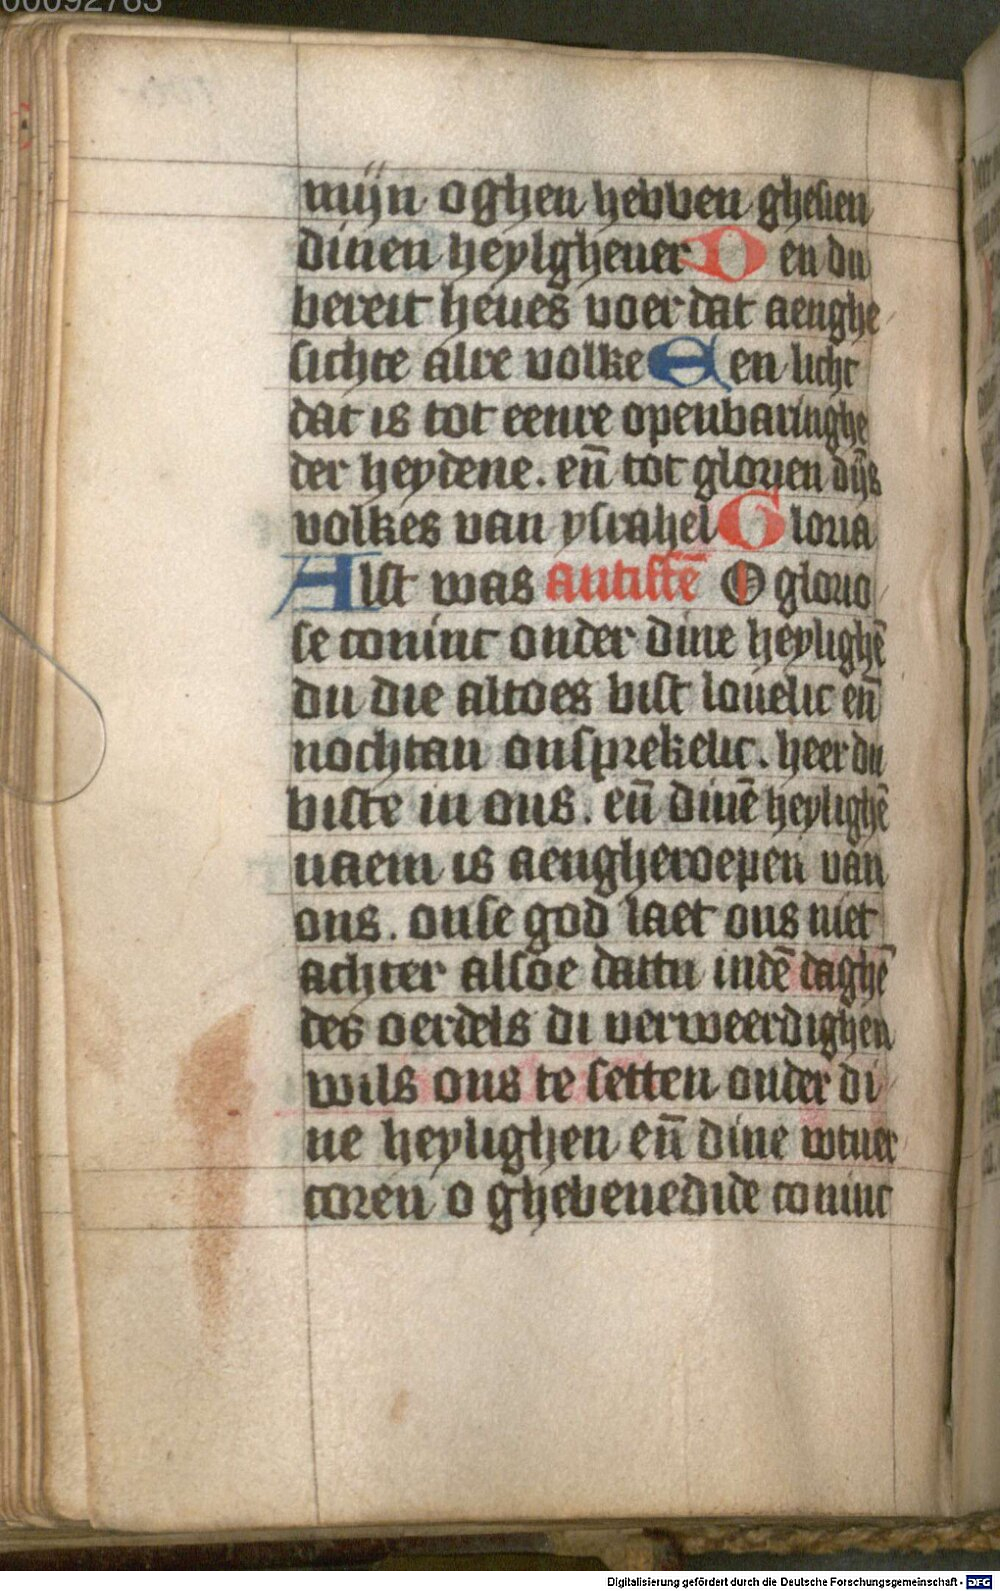 00092763
mijn oghen hebben ghesien
dinen heylgheuer Den du
bereit heues voer dat aenghe
sichte alre volke Een licht
dat is tot eenre openbaringhe
der heydene. en̄ tot glorien dijs
volkes van ysrahel Gloria
Alst was antiffē O glorio
se coninc onder dine heylighē
du die altoes bist louelic en̄
nochtan onsprekelic. heer du
biste in ons. en̄ dinē heylighē
naem is aengheroepen van
ons. onse god laet ons niet
achter alsoe dattu indē daghē
des oerdels di verweerdighen
wils ons te setten onder di
ne heylighen en̄ dine wtuer
coren o ghebenedide coninc
Digitalisierung gefördert durch die Deutsche Forschungsgemeinschaft - DFG